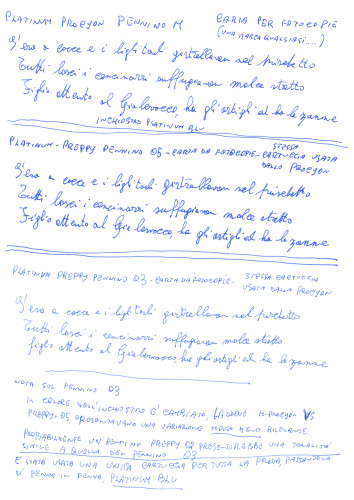 PLATINUM PROCYON PENNINO M
CARTA PER FOTOCOPIE
(UNA MARCA QUALSIASI....)
S'era a cocce e i ligli tarli
nel frischetto
Tutti losci i cencinarsi suffuggiavan molce stetto
Figlio attento al Gialavocco, ha gli artigli ed ha le zanne
INCHIOSTRO PLATINUM BLU
PLATINUM - PREPPY PENNINO 05 - CARTA DA FOTOCOPIE - STESSA CARTUCCIA USATA
DALLA PROCYON
S'era a cocce e i ligli tarli
nel frischetto
Tutti losci i cencinarsi suffuggiavan molce stetto
Figlio attento al Gialavocco ha gli artigli ed ha le zanne
PLATINUM PREPPY PENNINO 03 - CARTA DA FOTOCOPIE - STESSA CARTUCCIA
USATA DALLA PROCYON
S'era a cocce e i ligli tarli
nel frischetto
Tutti losci i cencinarsi suffuggiavan molce stetto
figlio attento al Gialavocco, ha gli artigli ed ha le zanne
NOTA SUL PENNINO 03
IL COLORE DELL'INCHIOSTRO E' CAMBIATO,
M-PROCYON VS
PREPPY-05 PRESENTAVANO UNA VARIAZIONE MENO RILEVABILE
PROBABILMENTE UN PENNINO PREPPY 02 PRESENTEREBBE UNA TONALITÀ
SIMILE A QUELLA DEL PENNINO 03
E' STATA USATA UNA UNICA CARTUCCIA PER TUTTA LA PROVA, PASSANDOLA
DI PENNA IN PENNA, PLATINUM BLU